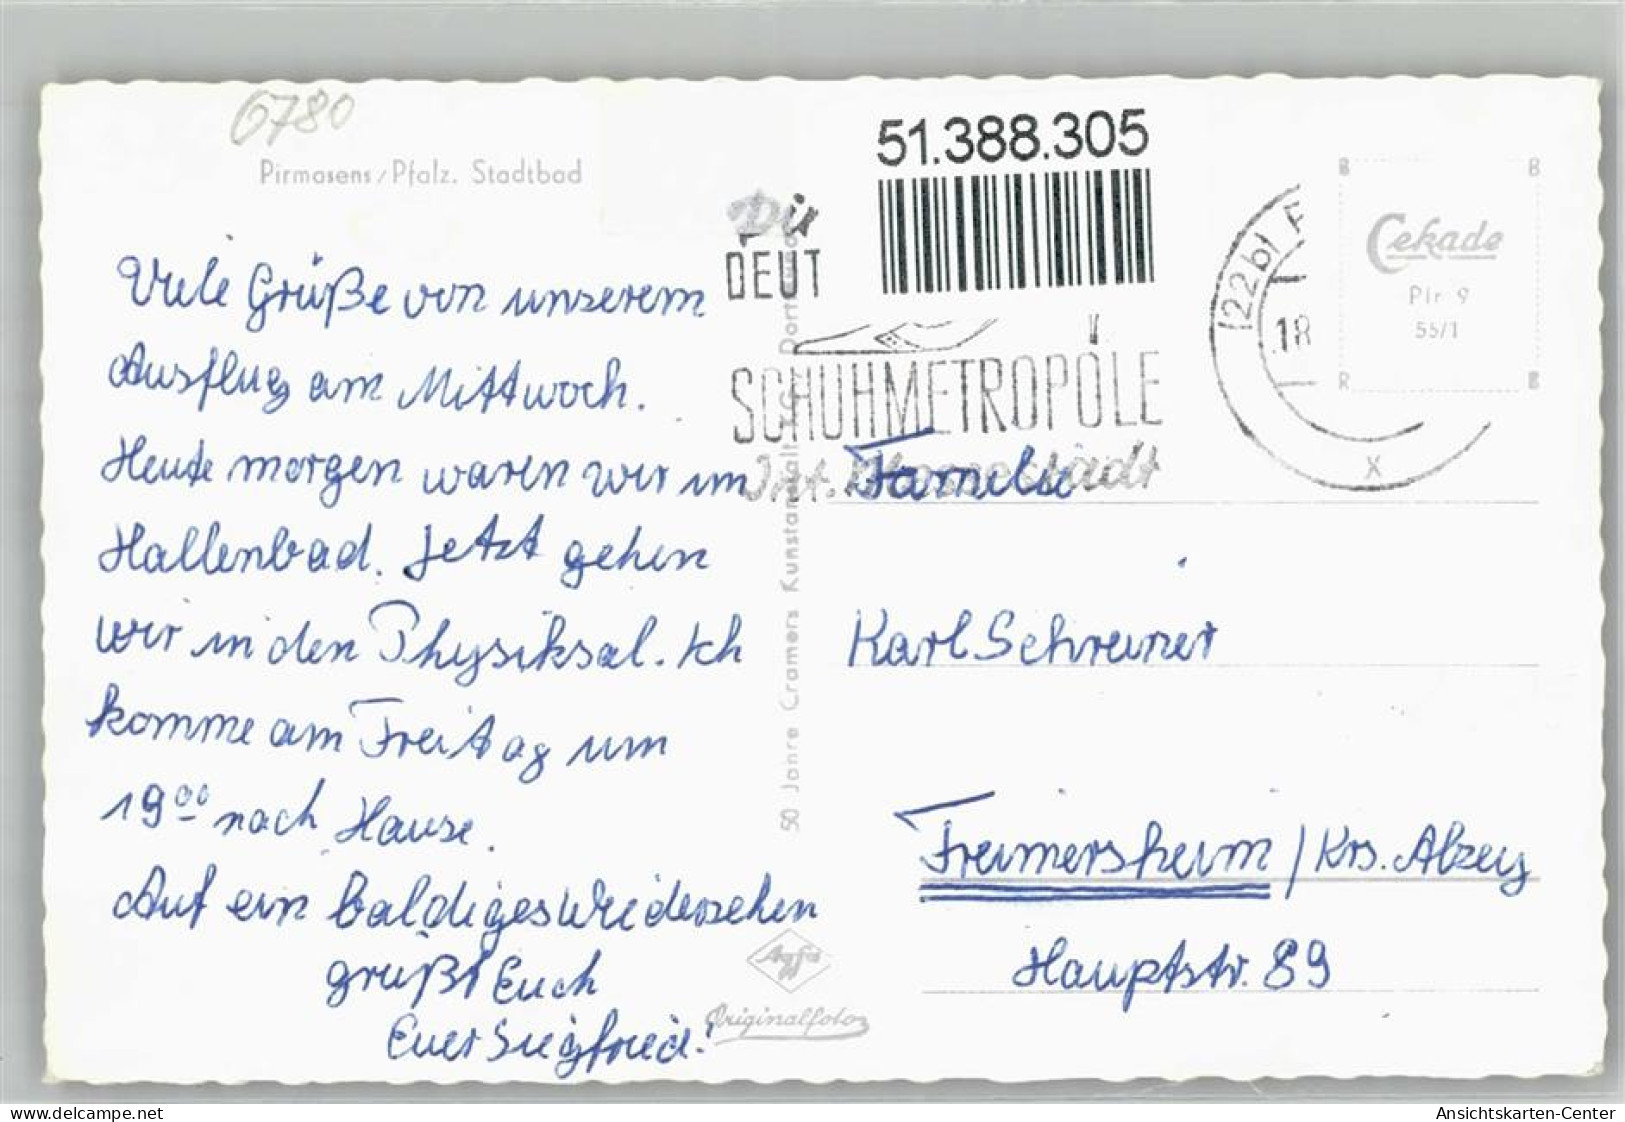 6780
Pirmasens/Pfalz. Stadtbad
Viele Grüße von unserem
Ausflug am Mittwoch.
Heute morgen waren wir im
Hallenbad. Jetzt gehen
wir in den Physiksal. Ich
komme am Freitag um
19⁰⁰ nach Hause.
Auf ein baldiges Wiedersehen
grüßt Euch
Euer Siegfried!
50 Jahre Cramers Kunstanstalt KG. Dortmund
Agfa
Originalfoto
51.388.305
Die
DEUT
SCHUHMETROPOLE
Int. Messestadt
(22b) P
18
x
Cekade
Pir 9
55/1
Familie
Karl Schreiner
Freimersheim / Krs. Alzey
Hauptstr. 89
Ansichtskarten-Center